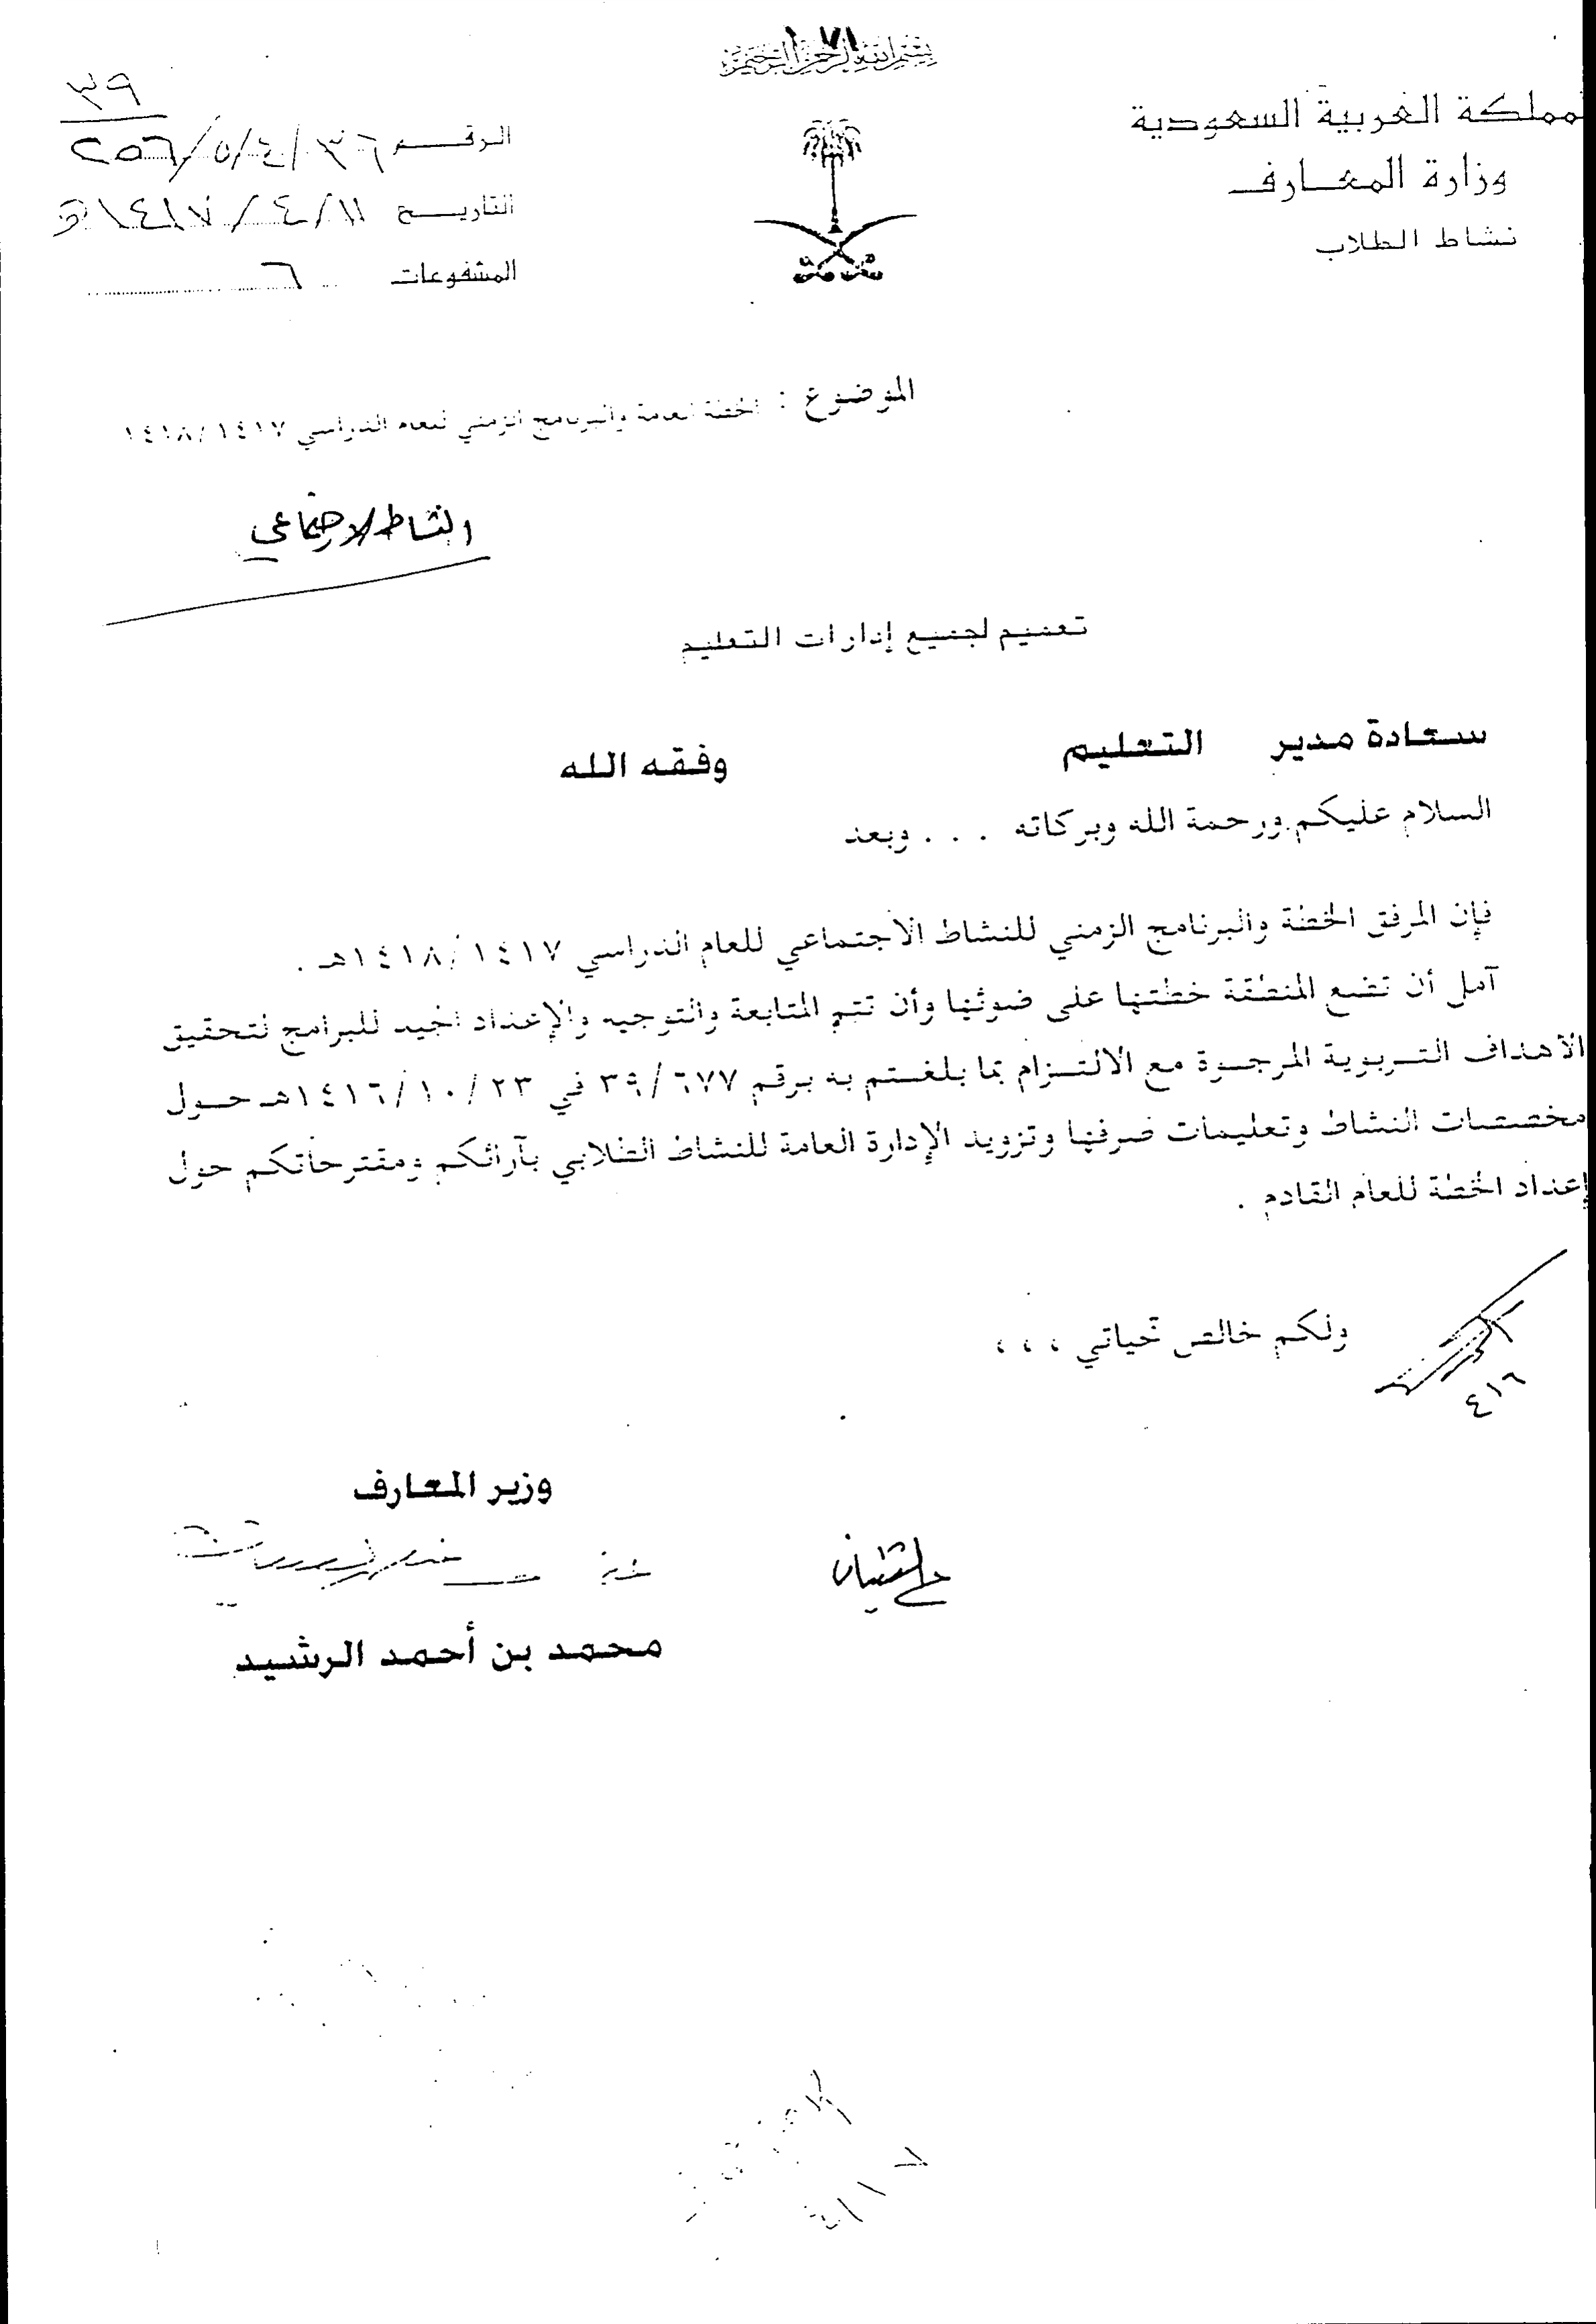 ١٧١
بسم الله الرحمن الرحيم
المملكة العربية السعودية
وزارة المعارف
نشاط الطلاب
٣٩
الرقم ٢٥٦/٥/٤/٣٦
التاريخ ١١/٤/١٤١٧هـ
المشفوعات ٦
الموضوع : الخطة العامة والبرنامج الزمني للعام الدراسي ١٤١٨/١٤١٧
النشاط الاجتماعي
تعميم لجميع إدارات التعليم
سعادة مدير التعليم وفقه الله
السلام عليكم ورحمة الله وبركاته . . . وبعد
فإن المرفق الخطة والبرنامج الزمني للنشاط الاجتماعي للعام الدراسي ١٤١٨/١٤١٧هـ .
آمل أن تضع المنطقة خطتها على ضوئها وأن تتم المتابعة والتوجيه والإعداد الجيد للبرامج لتحقيق
الأهداف التربوية المرجوة مع الالتزام بما بلغتم به برقم ٣٩/٦٧٧ في ١٤١٦/١٠/٢٣هـ حول
مخصصات النشاط وتعليمات صرفها وتزويد الإدارة العامة للنشاط الطلابي بآرائكم ومقترحاتكم حول
إعداد الخطة للعام القادم .
ولكم خالص تحياتي ، ، ،
٤١٦
وزير المعارف
محمد بن أحمد الرشيد